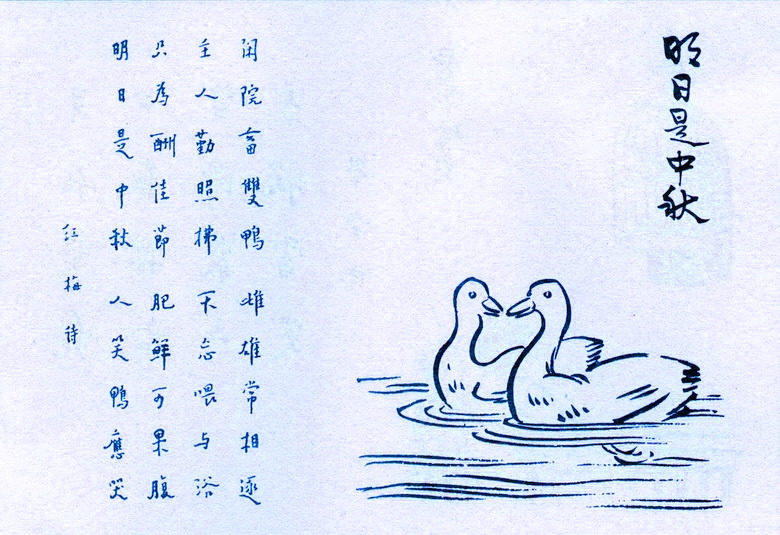 明日是中秋
闲院畜雙鴨 雌雄常相逐
主人勤照拂 不忘喂与浴
只為酬佳節 肥鮮可果腹
明日是中秋 人笑鴨應哭
红梅诗